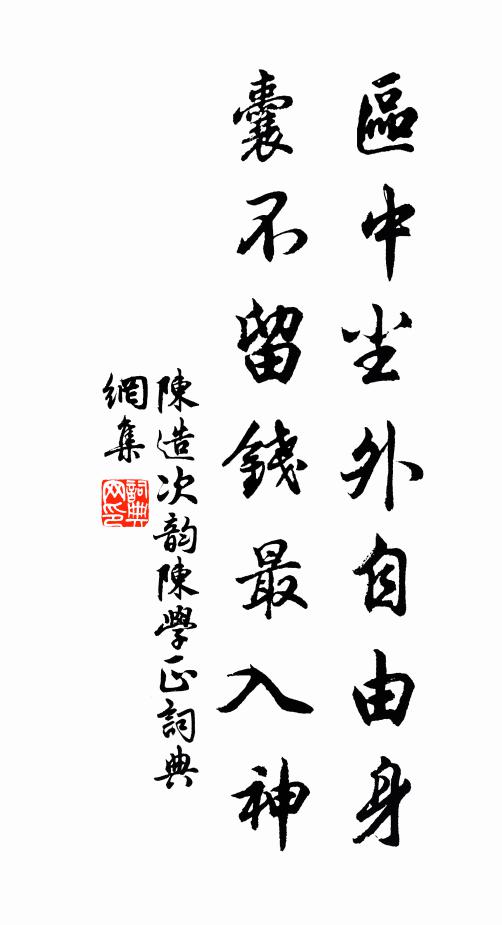 區中尘外自由身
囊不留錢最入神
陳造次韵陳學正詞典
網集
詞典
网印